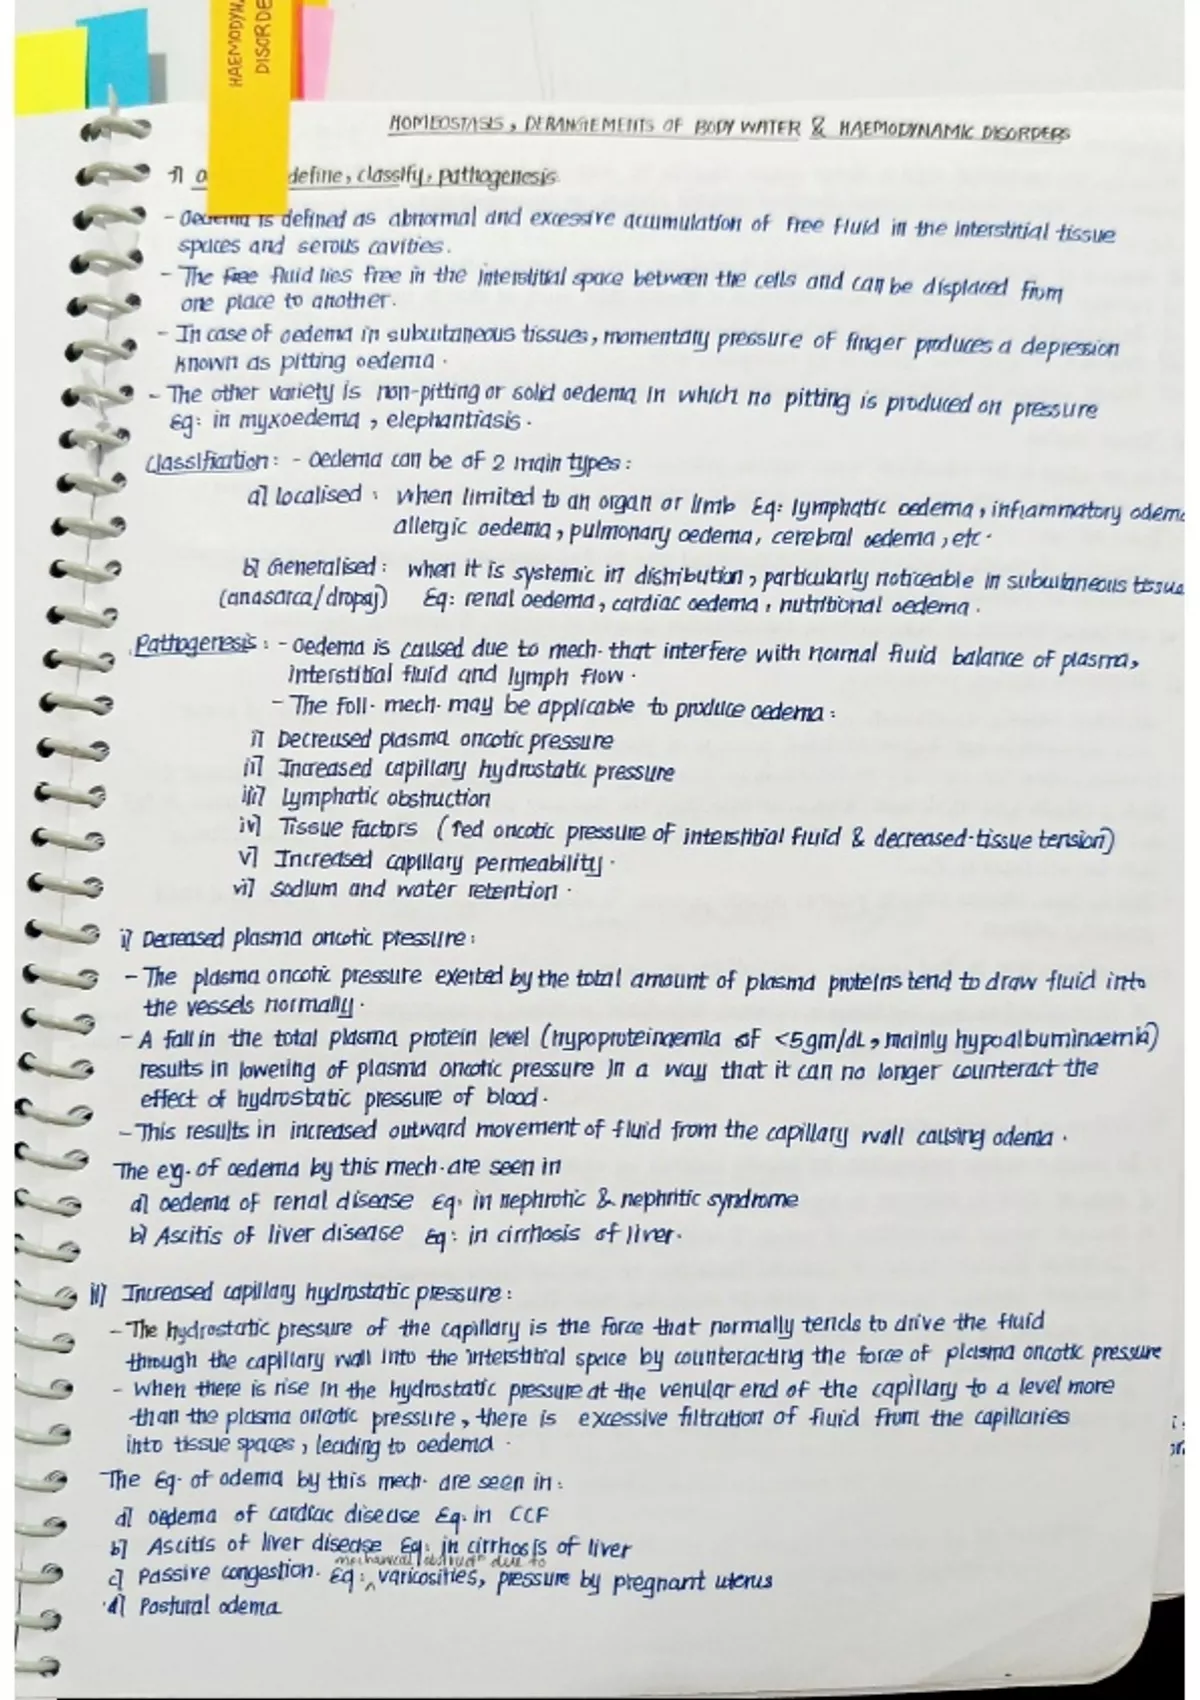 HAEMODYNA
DISORDE
HOMEOSTASIS, DERANGEMENTS OF BODY WATER & HAEMODYNAMIC DISORDERS
1] define, classify, pathogenesis
- Oedema is defined as abnormal and excessive accumulation of free fluid in the interstitial tissue
spaces and serous cavities.
- The free fluid lies free in the interstitial space between the cells and can be displaced from
one place to another.
- In case of oedema in subcutaneous tissues, momentary pressure of finger produces a depression
known as pitting oedema.
- The other variety is non-pitting or solid oedema in which no pitting is produced on pressure
Eg: in myxoedema, elephantiasis.
Classification: - Oedema can be of 2 main types:
a] localised: when limited to an organ or limb Eg: lymphatic oedema, inflammatory odema
allergic oedema, pulmonary oedema, cerebral oedema, etc.
b] Generalised: when it is systemic in distribution, particularly noticeable in subcutaneous tissue
(anasarca/dropsy) Eg: renal oedema, cardiac oedema, nutritional oedema.
Pathogenesis: - Oedema is caused due to mech. that interfere with normal fluid balance of plasma,
interstitial fluid and lymph flow.
- The foll. mech. may be applicable to produce oedema:
i] Decreased plasma oncotic pressure
ii] Increased capillary hydrostatic pressure
iii] Lymphatic obstruction
iv] Tissue factors (↑ed oncotic pressure of interstitial fluid & decreased tissue tension)
v] Increased capillary permeability.
vi] Sodium and water retention.
i] Decreased plasma oncotic pressure:
- The plasma oncotic pressure exerted by the total amount of plasma proteins tend to draw fluid into
the vessels normally.
- A fall in the total plasma protein level (hypoproteinaemia of <5gm/dL, mainly hypoalbuminaemia)
results in lowering of plasma oncotic pressure in a way that it can no longer counteract the
effect of hydrostatic pressure of blood.
- This results in increased outward movement of fluid from the capillary wall causing odema.
The eg. of oedema by this mech. are seen in
a] oedema of renal disease Eg. in nephrotic & nephritic syndrome
b] Ascitis of liver disease Eg: in cirrhosis of liver.
ii] Increased capillary hydrostatic pressure:
- The hydrostatic pressure of the capillary is the force that normally tends to drive the fluid
through the capillary wall into the interstitial space by counteracting the force of plasma oncotic pressure
- When there is rise in the hydrostatic pressure at the venular end of the capillary to a level more
than the plasma oncotic pressure, there is excessive filtration of fluid from the capillaries
into tissue spaces, leading to oedema.
The Eg. of odema by this mech. are seen in:
a] oedema of cardiac disease Eg. in CCF
b] Ascitis of liver disease Eg: in cirrhosis of liver
mechanical obstrucn due to
c] Passive congestion. Eg: ^ varicosities, pressure by pregnant uterus
d] Postural odema